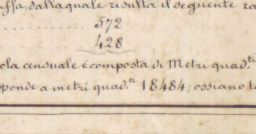 dalla quale risulta il seguente
572
428
censuale è composta di Metri quad.ti
a metri quad.ti 18484; ossiano